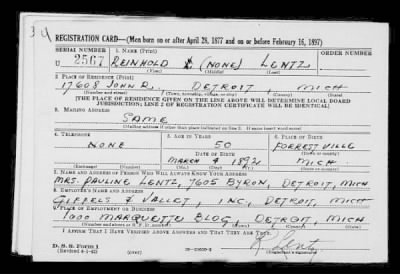 REGISTRATION CARD—(Men born on or after April 28, 1877 and on or before February 16, 1897)
SERIAL NUMBER 1. NAME (Print) ORDER NUMBER
U 2567 REINHOLD (NONE) LENTZ
(First) (Middle) (Last)
2. PLACE OF RESIDENCE (Print)
17608 JOHN R. DETROIT, MICH
(Number and street) (Town, township, village, or city) (County) (State)
[THE PLACE OF RESIDENCE GIVEN ON THE LINE ABOVE WILL DETERMINE LOCAL BOARD
JURISDICTION; LINE 2 OF REGISTRATION CERTIFICATE WILL BE IDENTICAL]
3. MAILING ADDRESS
SAME
(Mailing address if other than place indicated on line 2. If same insert word same)
4. TELEPHONE 5. AGE IN YEARS 6. PLACE OF BIRTH
NONE 50 FORRESTVILLE
DATE OF BIRTH (Town or county)
MARCH 4 1892 MICH.
(Exchange) (Number) (Mo.) (Day) (Yr.) (State or country)
7. NAME AND ADDRESS OF PERSON WHO WILL ALWAYS KNOW YOUR ADDRESS
MRS. PAULINE LENTZ, 7605 BYRON, DETROIT, MICH
8. EMPLOYER'S NAME AND ADDRESS
GIFFELS & VALLET, INC, DETROIT, MICH
9. PLACE OF EMPLOYMENT OR BUSINESS
1000 MARQUETTE BLDG, DETROIT, MICH
(Number and street or R. F. D. number) (Town) (County) (State)
I AFFIRM THAT I HAVE VERIFIED ABOVE ANSWERS AND THAT THEY ARE TRUE.
D. S. S. Form 1
(Revised 4-1-42) (over)
R Lentz